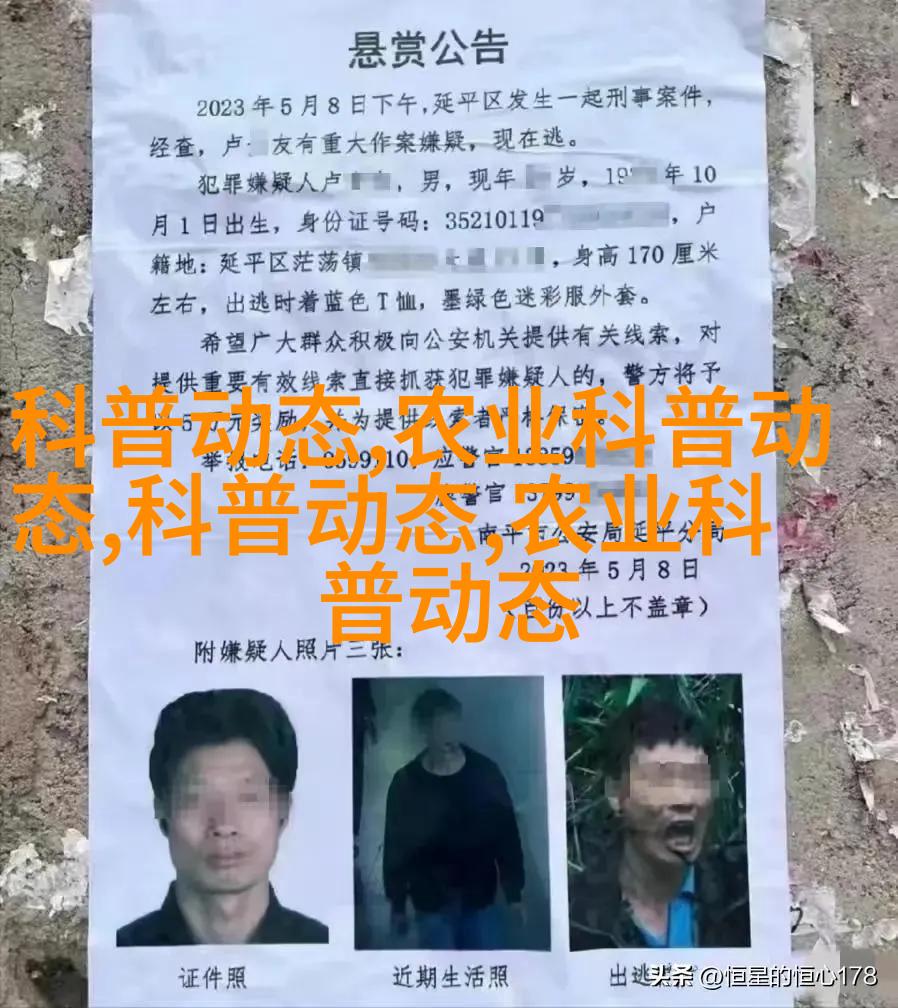 悬赏公告
2023年5月8日下午，延平区发生一起刑事案件，
经查，卢 友有重大作案嫌疑，现在逃。
犯罪嫌疑人卢 ，男，现年 岁，19 年10
月1日出生，身份证号码：35210119 ，户
籍地：延平区茫荡镇 ，身高170厘米
左右，出逃时着蓝色T恤，墨绿色迷彩服外套。
希望广大群众积极向公安机关提供有关线索，对
提供重要有效线索直接抓获犯罪嫌疑人的，警方将予
科普动态,农业科普动
态,科普动态,农业科
普动态
举报电话： 应警官
警官
南平市公安局延平分局
2023年5月8日
以上不盖章）
附嫌疑人照片三张：
证件照 近期生活照 出逃
头条 @恒星的恒心178